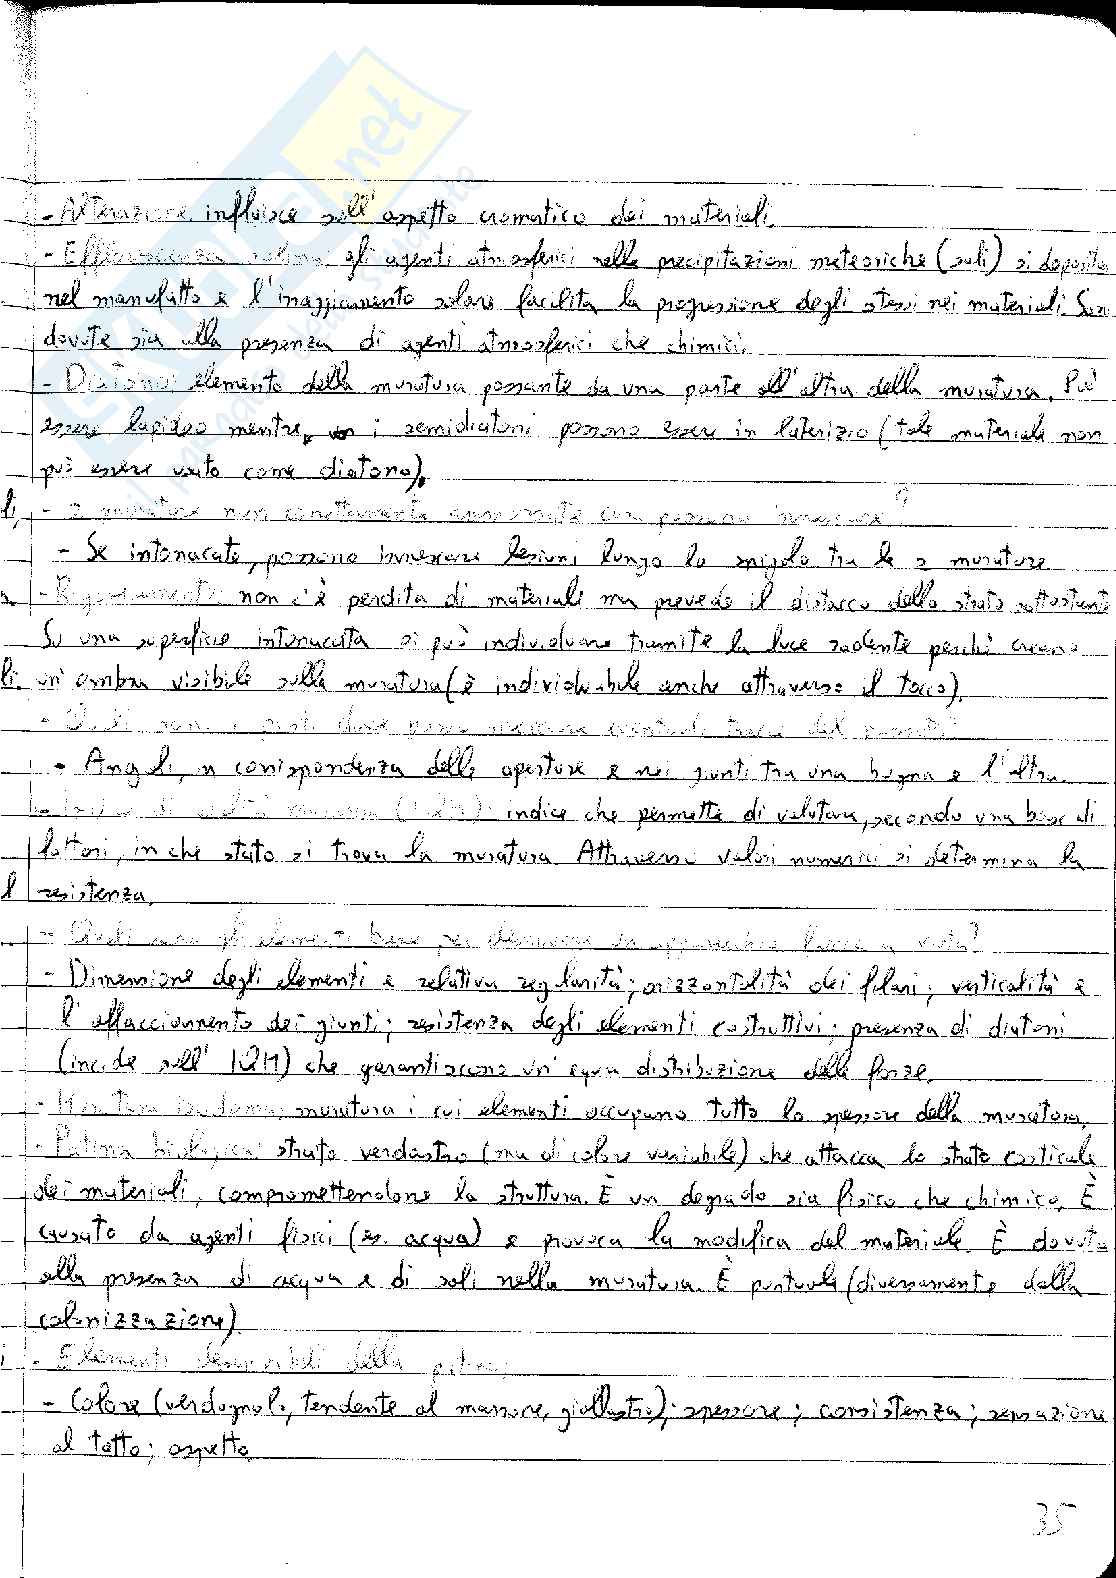 - Alterazione influisce sull'aspetto cromatico dei materiali.
- Efflorescenza salina: gli agenti atmosferici nelle precipitazioni meteoriche (sali) si deposita
nel manufatto e l'irraggiamento solare facilita la progressione degli stessi nei materiali. Son
dovute sia alla presenza di agenti atmosferici che chimici.
- Diatono: elemento della muratura passante da una parte all'altra della muratura. Può
essere lapideo mentre i semidiatoni possono essere in laterizio (tale materiale non
può essere usato come diatono).
- 2 murature non correttamente ammorsate cosa possono innescare?
- Se intonacate, possono innescare lesioni lungo lo spigolo tra le 2 murature
- Rigonfiamento: non c'è perdita di materiale ma prevede il distacco dello strato sottostante
Su una superficie intonacata si può individuare tramite la luce radente perchè creano
un'ombra visibile sulla muratura (è individuabile anche attraverso il tocco).
- Quali sono i punti dove eventuali tracce del
- Angoli, in corrispondenza delle aperture e nei giunti tra una bugna e l'altra.
- Indice di qualità muraria (IQM): indice che permette di valutare, secondo una base di
fattori, in che stato si trova la muratura. Attraverso valori numerici si determina la
resistenza.
- Quali sono gli elementi base per descrivere un apparecchio faccia a vista?
- Dimensione degli elementi e relativa regolarità; orizzontalità dei filari; verticalità e
l'affacciamento dei giunti; resistenza degli elementi costruttivi; presenza di diatoni
(incide sull'IQM) che garantiscono un'equa distribuzione delle forze.
- muratura i cui elementi occupano tutto lo spessore della muratura.
- Patina biologica: strato verdastro (ma di colore variabile) che attacca lo strato corticale
dei materiali, compromettendone la struttura. È un degrado sia fisico che chimico. È
causato da agenti fisici (es. acqua) e provoca la modifica del materiale. È dovuta
alla presenza di acqua e di sali nella muratura. È puntuale (diversamente dalla
colonizzazione)
- Elementi descrivibili della patina:
- Colore (verdognolo, tendente al marrone, giallastro); spessore; consistenza; sensazione
al tatto; aspetto
35